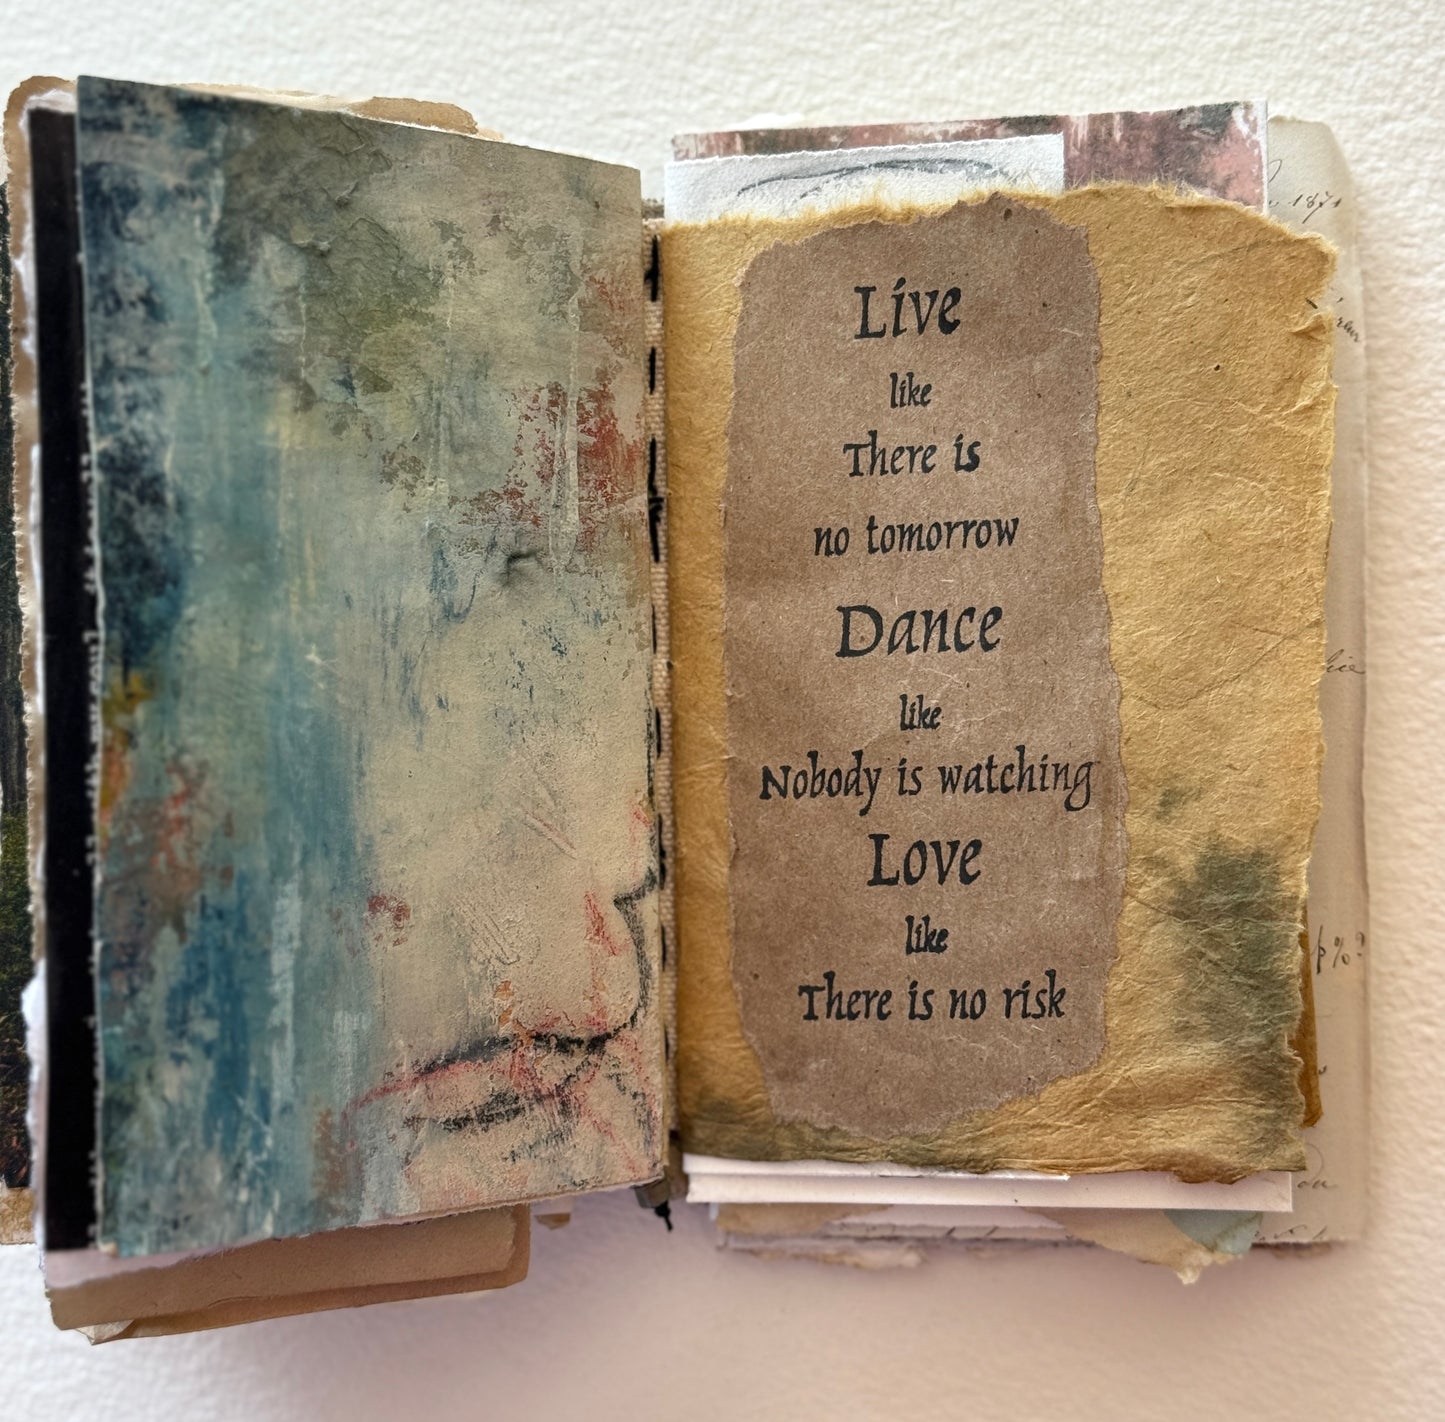 Live
like
There is
no tomorrow
Dance
like
Nobody is watching
Love
like
There is no risk
1871